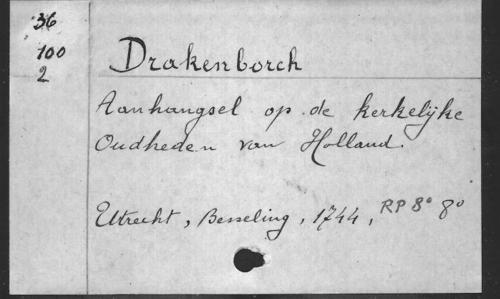 36
100
2
Drakenborch
Aanhangsel op de kerkelijke
Oudheden van Holland.
Utrecht, Besseling, 1744, RP 8° 8°